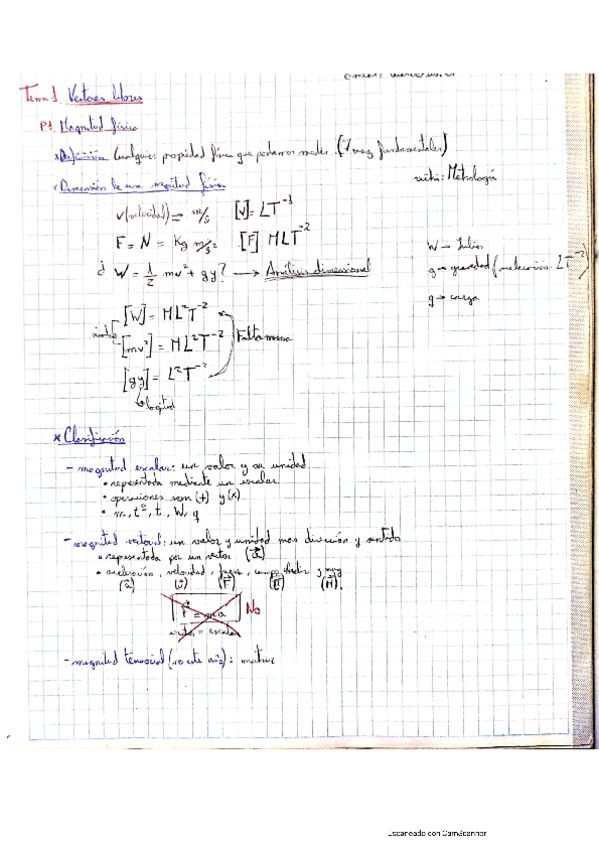 Tema 1. Vectores libres
P.1 Magnitud física
* Definición: Cualquier propiedad física que podamos medir. (7 mag. fundamentales)
wiki: Metrología
* Dimensión de una magnitud física
v (velocidad) = m/s [v] = LT⁻¹
F = N = Kg m/s² [F] MLT⁻²
W → Julios
¿ W = 1/2 mv² + gy? → Análisis dimensional
g → gravedad (aceleración LT⁻²)
g → carga
[W] = ML²T⁻²
[mv²] = ML²T⁻² Falta masa
[gy] = L²T⁻²
longitud
* Clasificación
- magnitud escalar: un valor y su unidad
• representada mediante un escalar
• operaciones son (+) y (x)
• m, tº, t, W, q
- magnitud vectorial: un valor y unidad mas dirección y sentido
• representada por un vector (a⃗)
• aceleración, velocidad, fuerza, campo
(a⃗) (v⃗) (F⃗) (E⃗) (H⃗).
F⃗ = ma No
vector = escalar
- magnitud tensorial (no este año): matriz
Escaneado con CamScanner